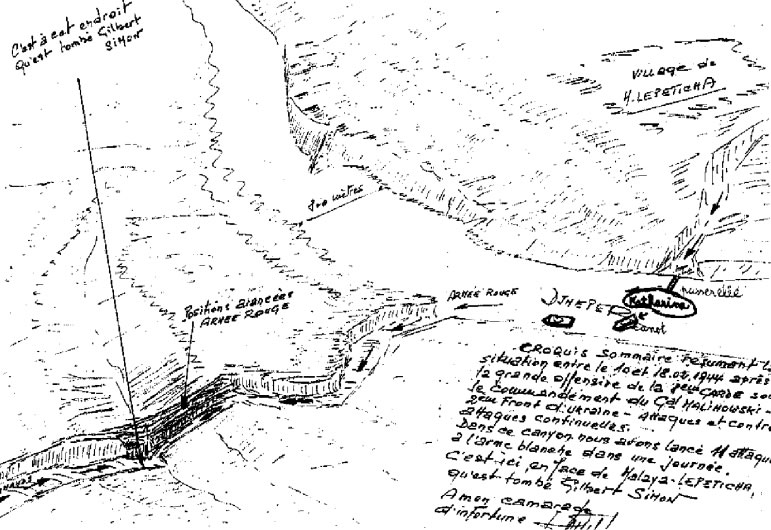 C'est à cet endroit
qu'est tombé Gilbert
SIMON
Village de
M.LEPETICHA
métres
Positions avancées
ARMÉE ROUGE
ARMÉE ROUGE
DJNEPER
Katharina
Canot
CROQUIS sommaire résumant
situation entre le 10 et 18.02.1944 après
la grande offensive de la 8emeGARDE
le commandement du Gal MALINOWSKI -
2ème Front d'Ukraine - Attaques et contre
attaques continuelles...
Dans ce canyon nous avons lancé 11 attaques
à l'arme blanche dans une journée.
C'est ici en face de Malaya-LEPETICHA,
qu'est tombé Gilbert SIMON
A mon camarade
d'infortune